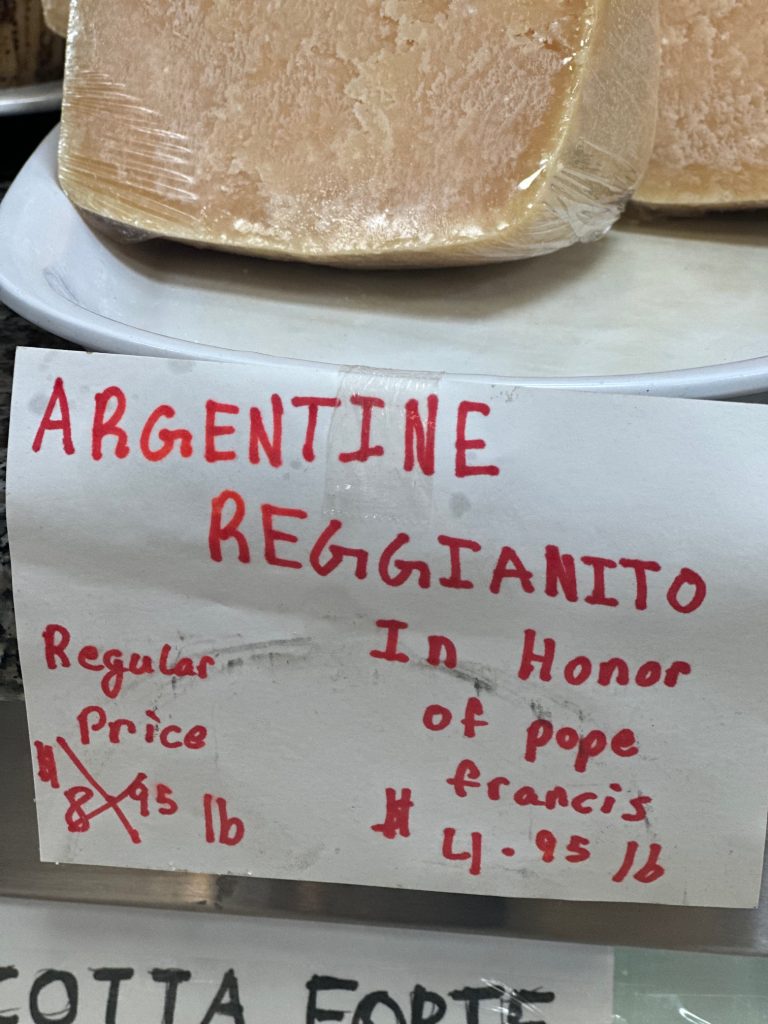 ARGENTINE
REGGIANITO
Regular
Price
$8.95 lb
In Honor
of pope
francis
$4.95 lb
COTTA FORTE